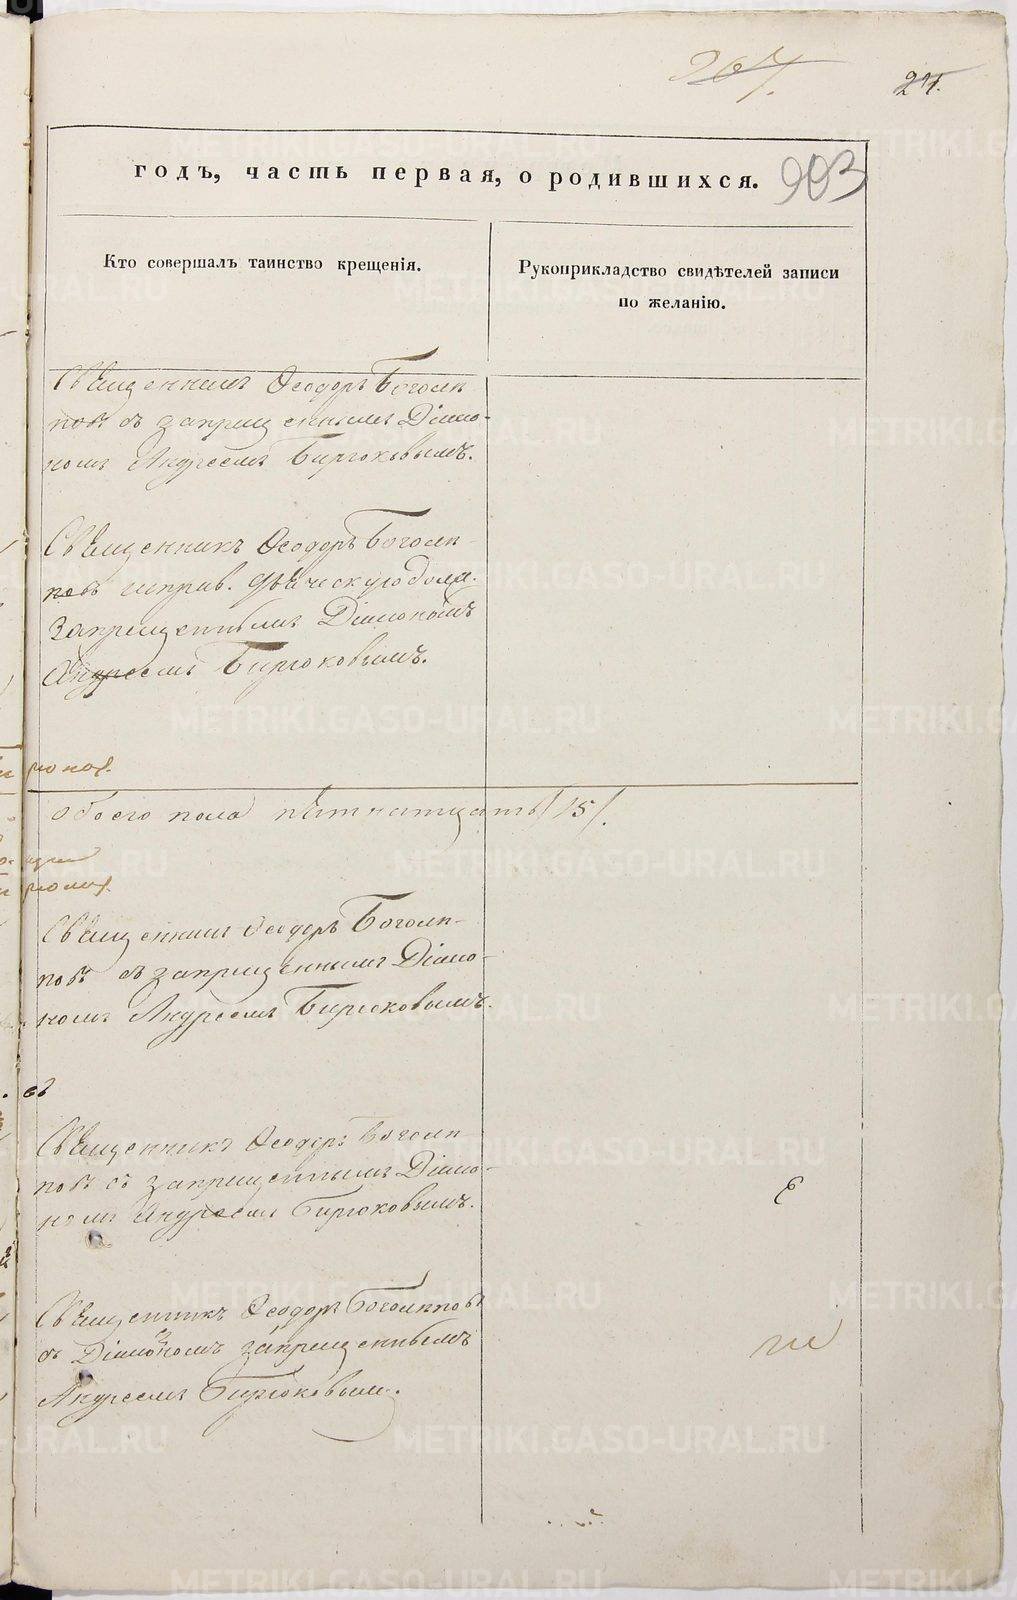 267.
24.
годъ, часть первая, о родившихся.
903
Кто совершалъ таинство крещенія.
Рукоприкладство свидѣтелей записи
по желанію.
Священникъ Ѳеодоръ Боголѣ
повъ съ запрещеннымъ Діако-
номъ Андреемъ Бирюковымъ.
Священникъ Ѳеодоръ Боголѣ-
повъ исправ. дьяческую долж.
запрещеннымъ Діакономъ
Андреемъ Бирюковымъ.
обоего пола пятнатцать /15/.
Священникъ Ѳеодоръ Боголѣ-
повъ съ запрещеннымъ Діако-
номъ Андреемъ Бирюковымъ.
въ
Священникъ Ѳеодоръ Боголѣ
повъ съ запрещеннымъ Діако-
номъ Андреемъ Бирюковымъ.
Священникъ Ѳеодоръ Боголѣповъ
съ Діакономъ запрещеннымъ
Андреемъ Бирюковым.
METRIKI.GASO-URAL.RU